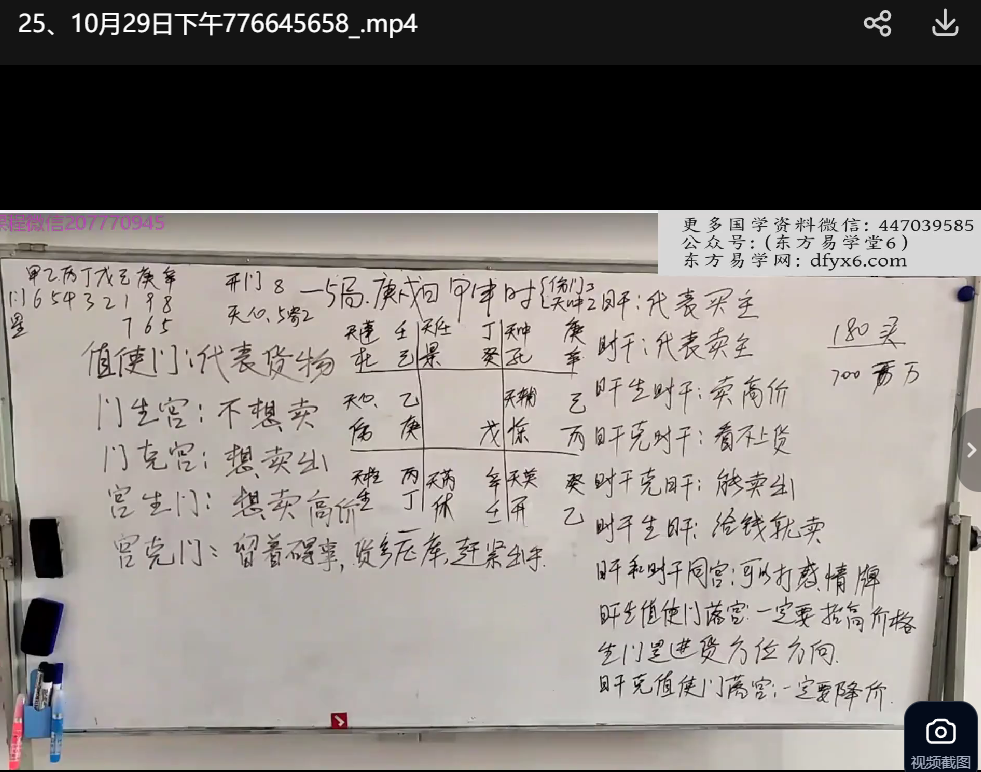 25、10月29日下午776645658_.mp4
程微信207770945
更多国学资料微信：447039585
公众号：(东方易学堂6)
东方易学网：dfyx6.com
甲乙丙丁戊己庚辛
门 6 5 4 3 2 1 9 8
星 7 6 5
开门 8
天心、5寄2
一5局.庚戌日 甲申时
伤门3
天冲2
值使门：代表货物
门生宫：不想卖
门克宫：想卖出
宫生门：想卖高价
宫克门：留着碍事，货多压库，赶紧出手.
天蓬 壬
杜 己
天任 丁
景 癸
天冲 庚
死 辛
天心、乙
伤 庚
戊
天辅 己
惊 丙
天柱 丙
生 丁
天芮 辛
休 壬
天英 癸
开 乙
日干：代表买主
时干：代表卖主
日干生时干：卖高价
日干克时干：看不上货
时干克日干：能卖出
时干生日干：给钱就卖
日干和时干同宫：可以打感情牌
日干生值使门落宫：一定要抬高价格
生门是进货方位方向.
日干克值使门落宫：一定要降价.
180买
700 万
视频截图